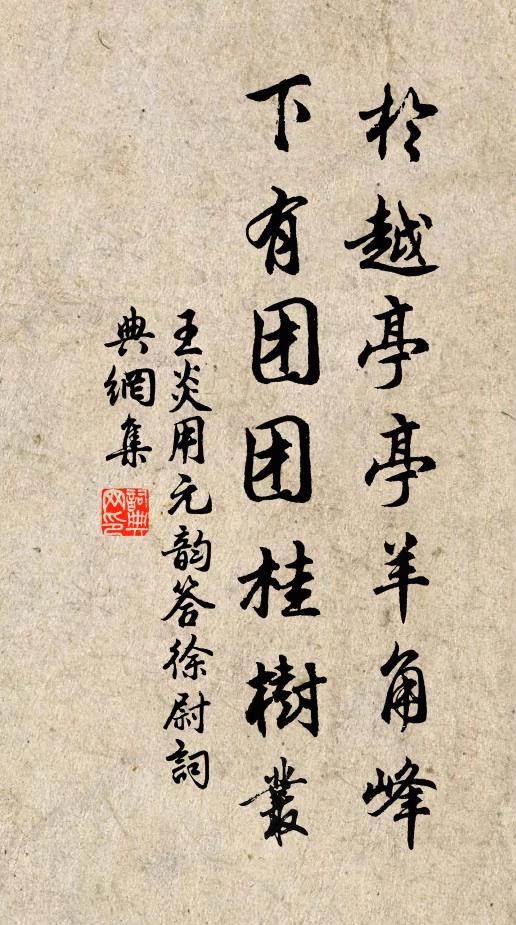 於越亭亭羊角峰
下有团团桂樹叢
王炎用元韵答徐尉詞
典網集
詞典
网印